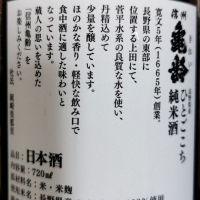 信州
亀齢
ひとごこち
純米酒
寛文5年(1665年)創業。
長野県の東部に
位置する上田にて、
菅平水系の良質な水を使い、
丹精込めて
少量を醸しています。
ほのかな香り・軽快な飲み口で
食中酒に適した味わいと
なっています。
蔵人の思いを込めた
「信州亀齢」を
お楽しみください。
品目 日本酒
内容量 720ml
原材料名 米・米麹